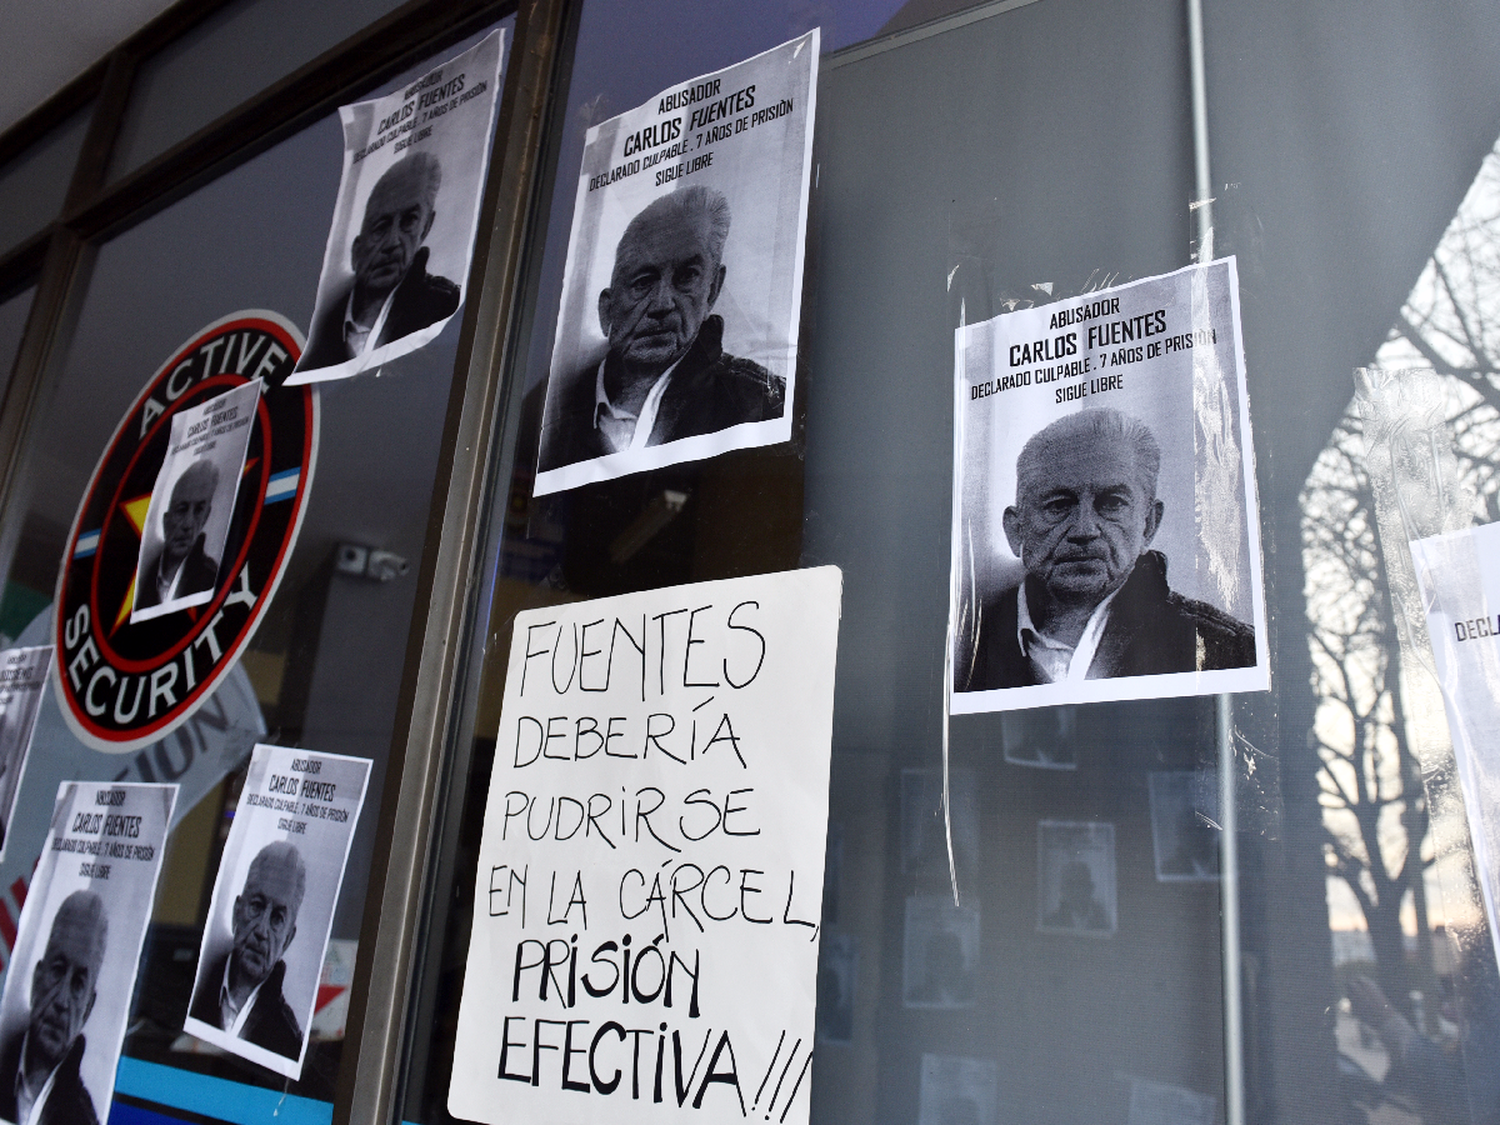 ABUSADOR
CARLOS FUENTES
DECLARADO CULPABLE . 7 AÑOS DE PRISIÒN
SIGUE LIBRE
ABUSADOR
CARLOS FUENTES
DECLARADO CULPABLE . 7 AÑOS DE PRISIÒN
SIGUE LIBRE
ABUSADOR
CARLOS FUENTES
DECLARADO CULPABLE . 7 AÑOS DE PRISIÒN
SIGUE LIBRE
ACTIVE
SECURITY
ABUSADOR
CARLOS FUENTES
DECLARADO CULPABLE . 7 AÑOS DE PRISIÒN
SIGUE LIBRE
FUENTES
DEBERÍA
PUDRIRSE
EN LA CÁRCEL,
PRISIÓN
EFECTIVA!!!
ABUSADOR
CARLOS FUENTES
DECLARADO CULPABLE . 7 AÑOS DE PRISIÒN
SIGUE LIBRE
ABUSADOR
CARLOS FUENTES
DECLARADO CULPABLE . 7 AÑOS DE PRISIÒN
SIGUE LIBRE